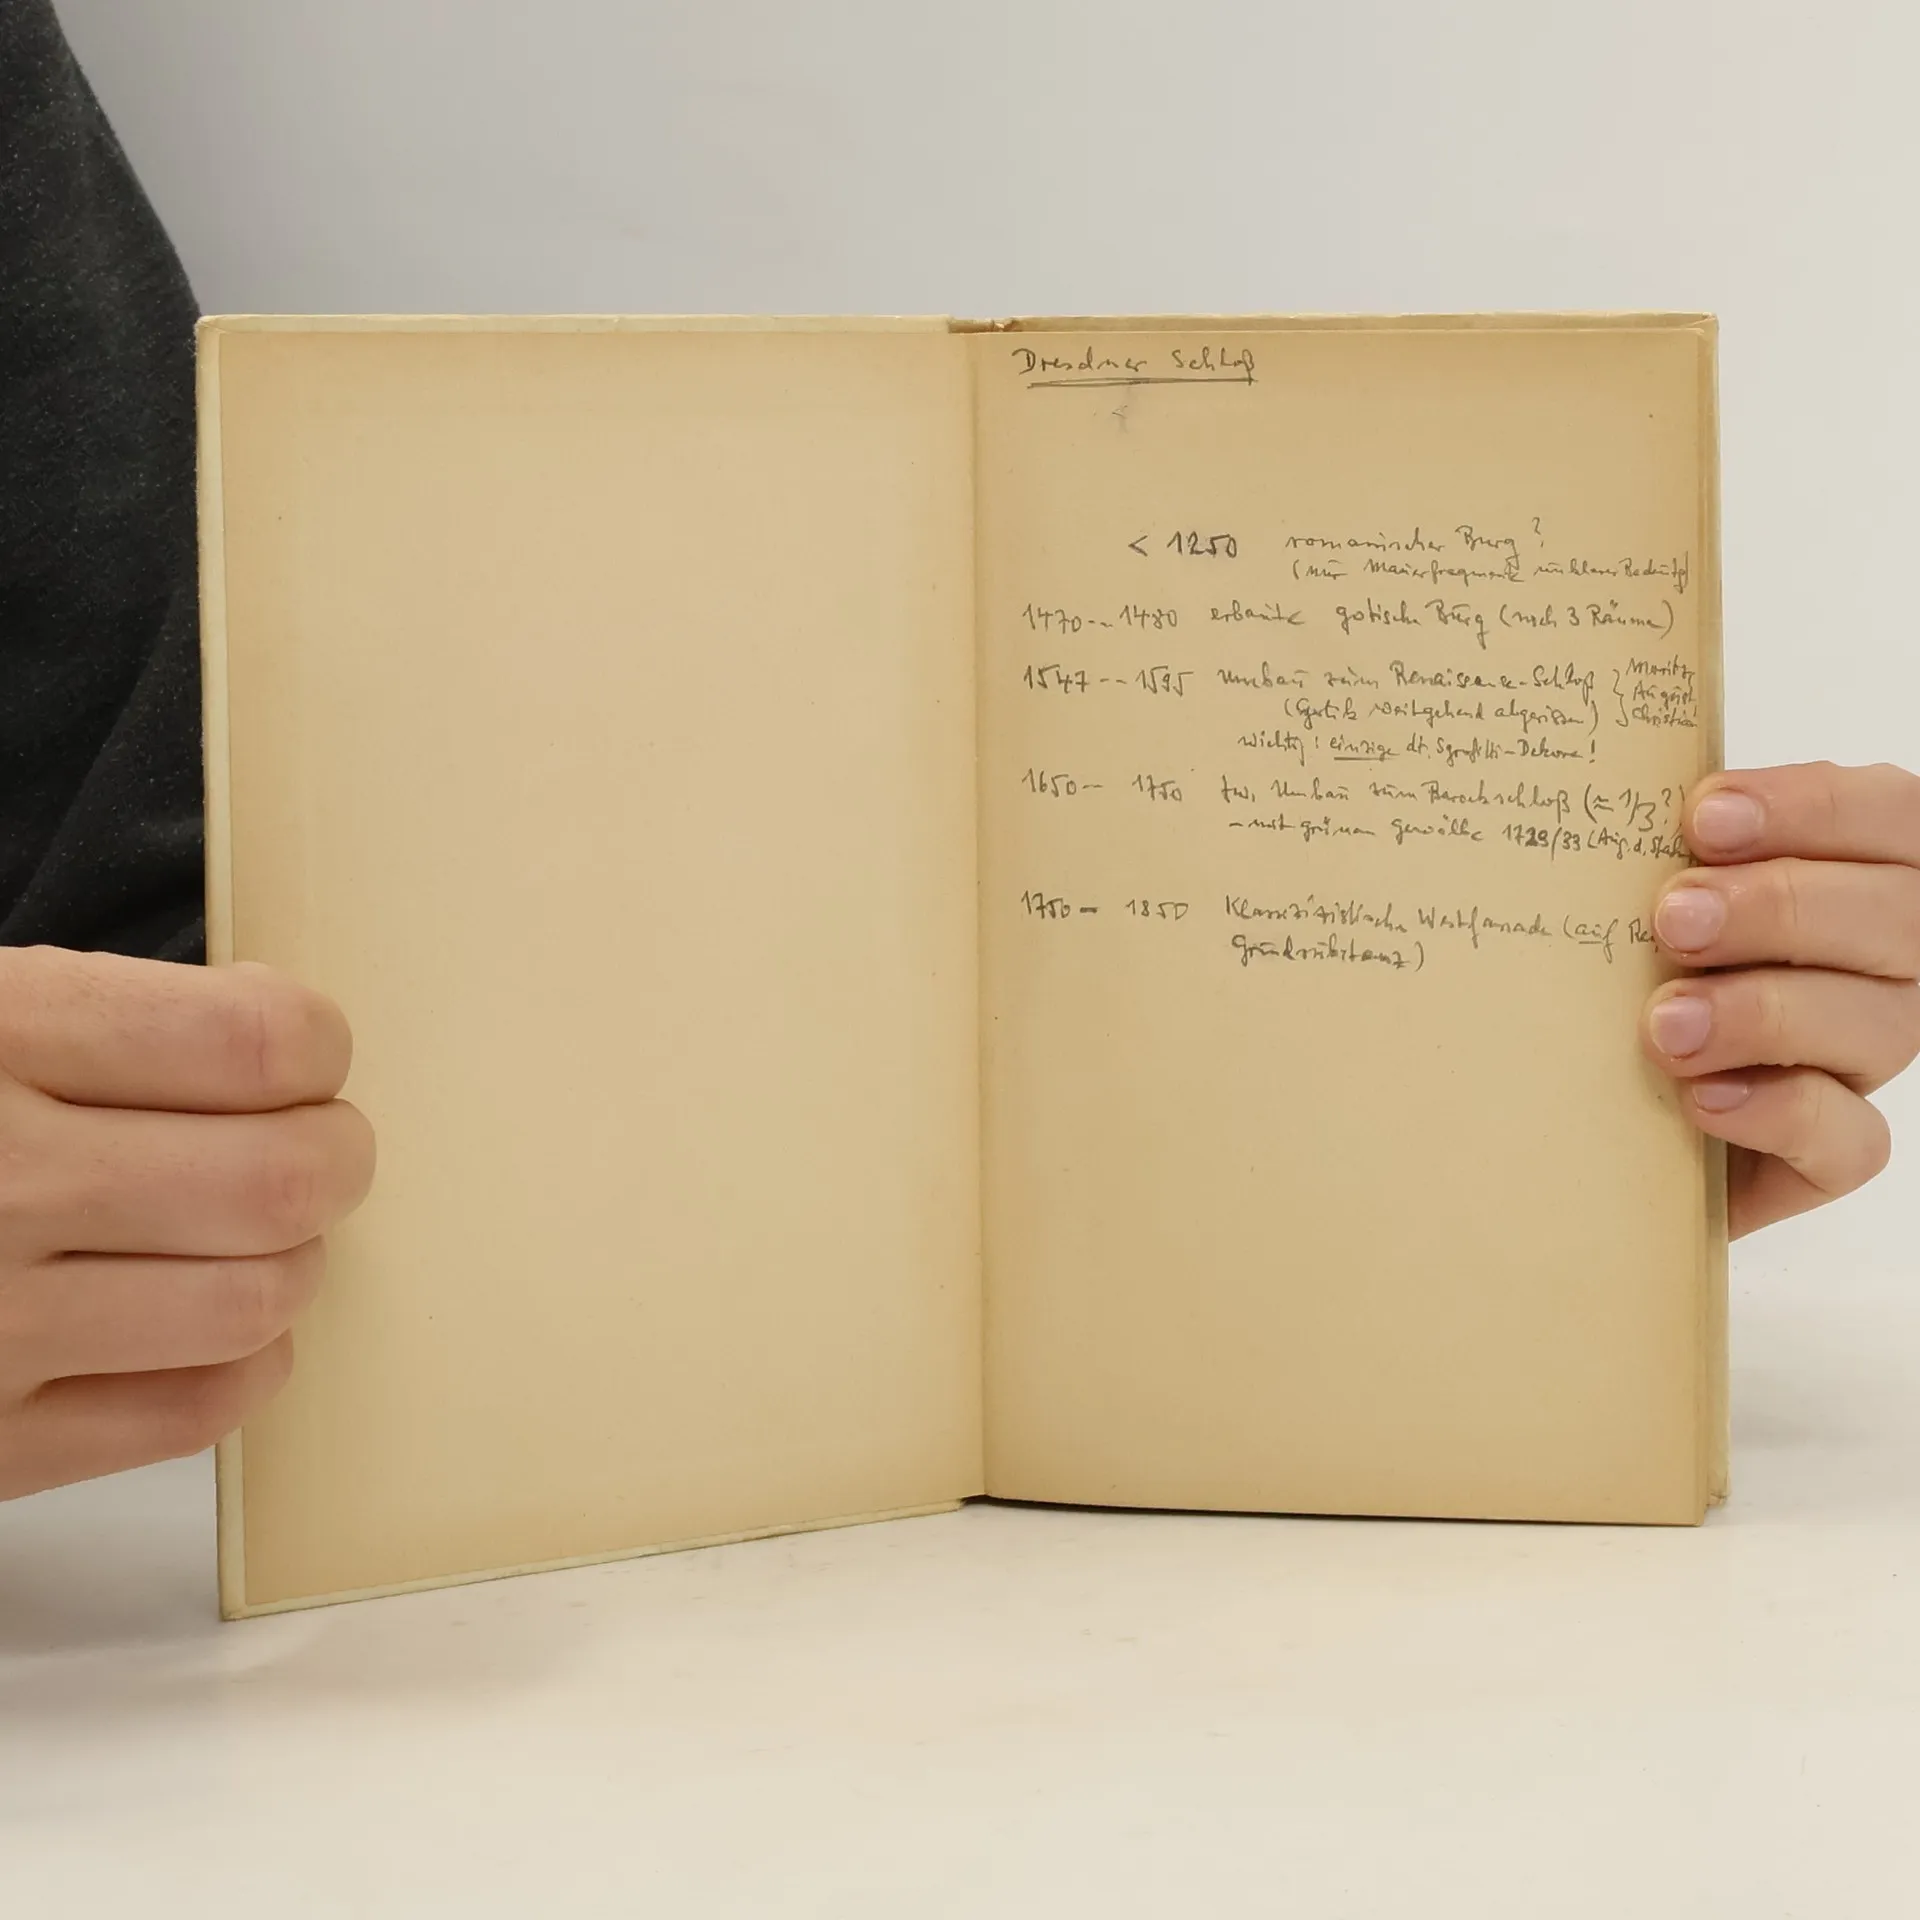 Dresdner Schloß
<
< 1250 romanischer Burg ?
(nur Mauerfragmente unklarer Bedeutg)
1470-- 1480 erbaute gotische Burg (noch 3 Räume)
1547 -- 1595 Umbau zum Renaissance-Schloß } Moritz,
August
(Gotik weitgehend abgerissen) Christian
wichtig: einzige dt. Sgrafitti-Dekore!
1650 -- 1750 tw. Umbau zum Barockschloß (≈ 1/3?)
- mit grünem Gewölbe 1723/33 (Aug. d. Stark
1750 - 1850 Klassizistische Westfassade (auf Ren.
Grundsubstanz)